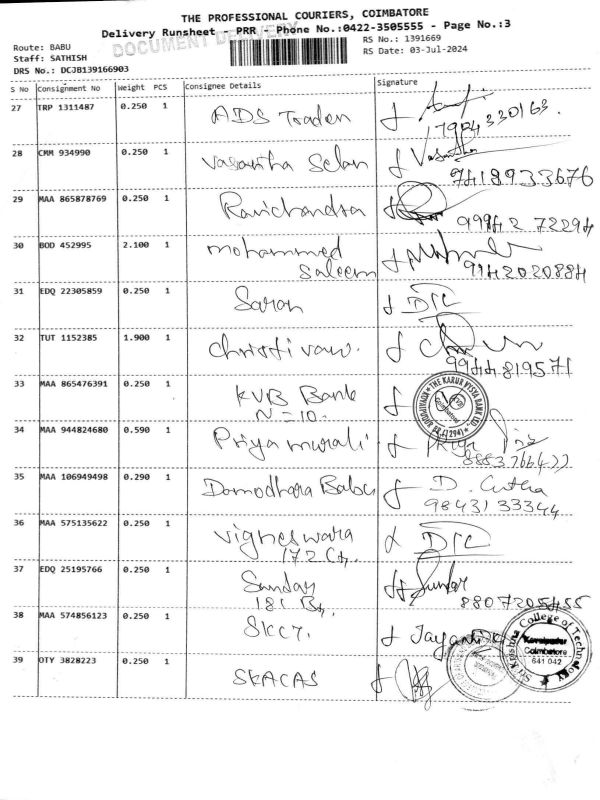 THE PROFESSIONAL COURIERS, COIMBATORE
Delivery Runsheet - PRR - Phone No.:0422-3505555 - Page No.:3
DOCUMENT DELIVERY
Route: BABU
RS No.: 1391669
Staff: SATHISH
RS Date: 03-Jul-2024
DRS No.: DCJB139166903
S No Consignment No Weight PCS Consignee Details Signature
27 TRP 1311487 0.250 1 ADS Traders
28 CMM 934990 0.250 1 Vasantha Selan Vasantha
9418933676
29 MAA 865878769 0.250 1 Ravichandra
9994272294
30 BOD 452995 2.100 1 mohammed
Saleem 9942020884
31 EDQ 22305859 0.250 1 Saran
32 TUT 1152385 1.900 1
9944819571
33 MAA 865476391 0.250 1 KVB Bank
N=10.
THE KARUR VYSYA BANK LTD.
34 MAA 944824680 0.590 1 Priya murali Priya
35 MAA 106949498 0.290 1 Damodhara Babu D.
9843133344
36 MAA 575135622 0.250 1 Vigneswara
172
37 EDQ 25195766 0.250 1 Sunday
181
8807205455
38 MAA 574856123 0.250 1 SKCT. Jayanthi
Sri Krishna College of Technology
Kovaipudur
Coimbatore
641 042
39 OTY 3828223 0.250 1 SKACAS